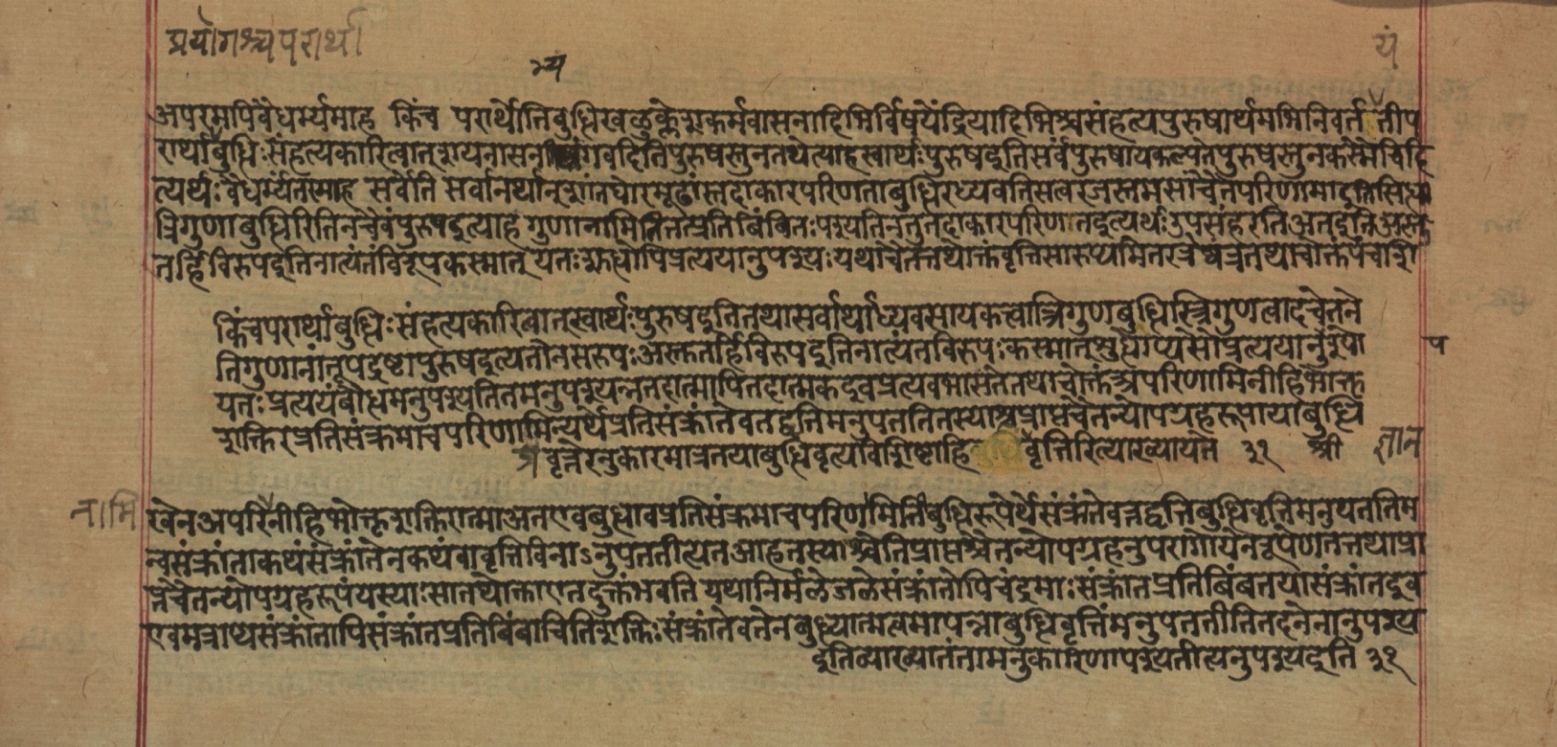 प्रयोगश्चपरार्थ।
भ्यं
यं
अपरमपिवैधर्म्यमाह किंच परार्थेतिबुद्धिःखलुक्लेशकर्मवासनादिभिर्विषयेंद्रियादिभिश्चसंहत्यपुरुषार्थमभिनिवर्ततीप
रार्थाबुद्धिःसंहत्यकारित्वात्शयनासनांगवदितिपुरुषस्तुनतथेत्याहस्वार्थःपुरुषइतिसर्वंपुरुषायकल्पतेपुरुषस्तुनकस्मैचिदि
त्यर्थःवैधर्म्यंतरमाह सर्वेति सर्वानर्थान्शांतघोरमूढांस्तदाकारपरिणताबुद्धिरध्यवस्यतिसत्वरजस्तमसांचैतेपरिणामाइतिसिद्धा
त्रिगुणाबुद्धिरितिनचैवंपुरुषइत्याह गुणानामितितत्प्रतिबिंबितःपश्यतिनतुतदाकारपरिणतइत्यर्थःउपसंहरतिअतइतिअस्तु
तर्हिविरूपइतिनात्यंतंविरूपःकस्मात् यतःशुद्धोपिप्रत्ययानुपश्यःयथाचैतत्तथोक्तंवृत्तिसारूप्यमितरत्रेत्यत्रतथाचोक्तंपंचशि
किंचपरार्थाबुद्धिःसंहत्यकारित्वात्स्वार्थःपुरुषइतितथासर्वार्थाध्यवसायकत्वात्त्रिगुणाबुद्धिस्त्रिगुणत्वादचेतने
तिगुणानांतूपद्रष्टापुरुषइत्यतोनसरूपःअस्तुतर्हिविरूपइतिनात्यंतंविरूपःकस्मात्शुद्धोप्यसौप्रत्ययानुपश्यो
प
यतःप्रत्ययंबौद्धमनुपश्यतितमनुपश्यन्नतदात्मापितदात्मकइवप्रत्यवभासतेतथाचोक्तंअपरिणामिनीहिभोक्तृ
शक्तिरप्रतिसंक्रमाचपरिणामिन्यर्थेप्रतिसंक्रांतेवतद्वृत्तिमनुपततितस्याश्चप्राप्तचैतन्योपग्रहरूपायाबुद्धि
वृत्तेरनुकारमात्रतयाबुद्धिवृत्त्यविशिष्टाहि वृत्तिरित्याख्यायते २१ श्री ज्ञान
नामि
खेनअपरिनीहिभोक्तृशक्तिरात्माअतएवबुद्धावप्रतिसंक्रमाचपरिणामिनिबुद्धिरूपेर्थेसंक्रांतेवतद्वृत्तिंबुद्धिवृत्तिमनुपततिन
न्वसंक्रांताकथंसंक्रांतेनकथंवावृत्तिंविनाऽनुपततीत्यतआहतस्याश्चेतिप्राप्तश्चैतन्योपग्रहउपरागोयेनरूपेणतत्तथाप्रा
प्तचैतन्योपग्रहरूपंयस्याःसातथोक्ताएतदुक्तंभवति यथानिर्मलेजलेसंक्रांतोपिचंद्रमाःसंक्रांतप्रतिबिंबतयासंक्रांतइव
एवमत्राप्यसंक्रांतापिसंक्रांतप्रतिबिंबाचितिशक्तिःसंक्रांतेवतेनबुद्ध्यात्मत्वमापन्नाबुद्धिवृत्तिमनुपततीतितदनेनानुपश्य
इतिव्याख्यातंतामनुकारेणपश्यतीत्यनुपश्यइति २१